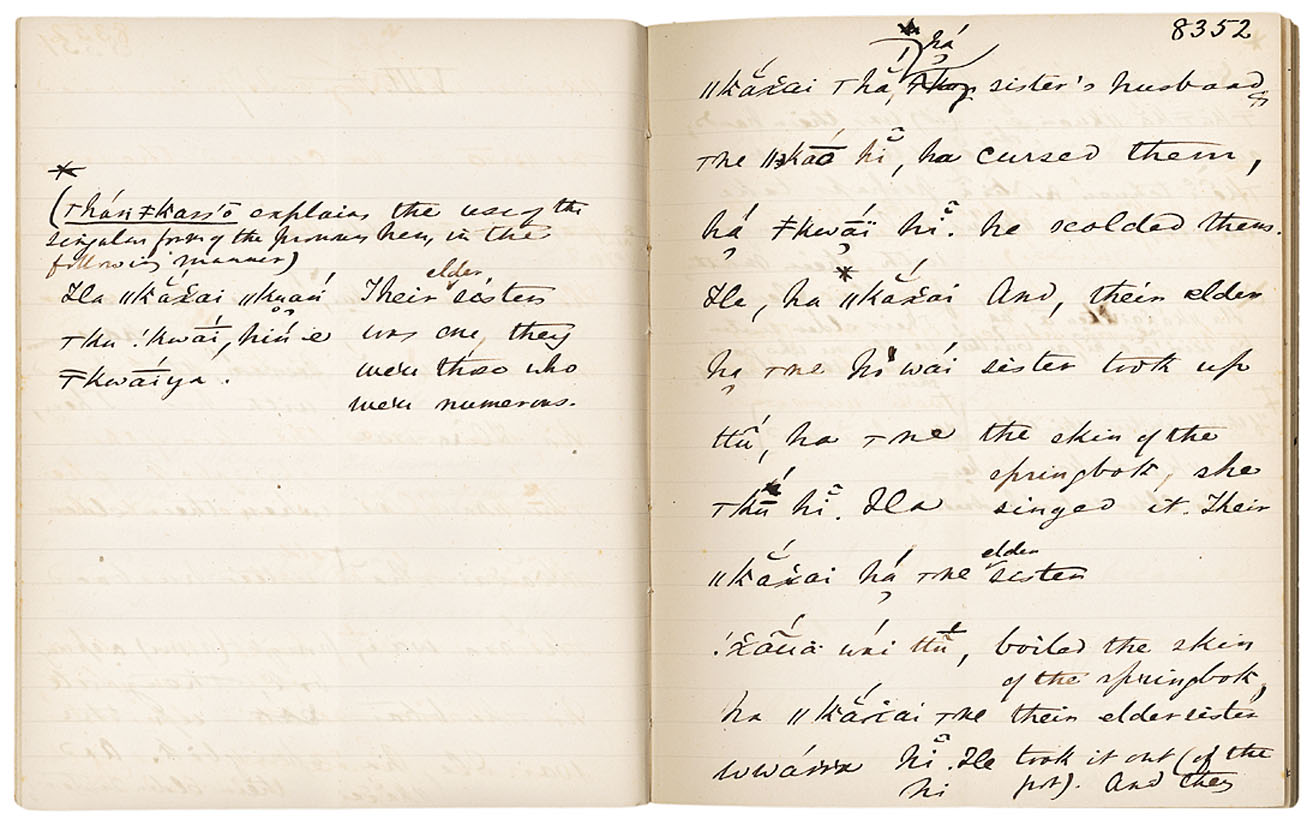 *
(Thán ǂkass'ō explains the use of the
singular form of the pronoun her, in the
following manner)
Ha ǁkắx̌ai ǁkuạń Their elder sister
Tku !kwáí, hiń e was one, they
ǂkwáíya. were those who
were numerous.
8352
* hạ́
ǁkắx̌ai Thạ́, sister's husband
Tne hĩ, ha cursed them,
hạ́ ǂkwạ́ï hĩ. he scolded them.
Ha, ha *ǁkắx̌ai And, their elder
hạ Tne hi wái sister took up
ttũ, ha Tne the skin of the
springbok, she
Tkũ hĩ. Ha singed it. Their
ǁkắx̌ai hạ́ Tne elder sister
wái ttũ, boiled the skin
of the springbok,
ha ǁkắx̌ai Tne their elder sister
hĩ. He took it out (of the
hi pot). And they